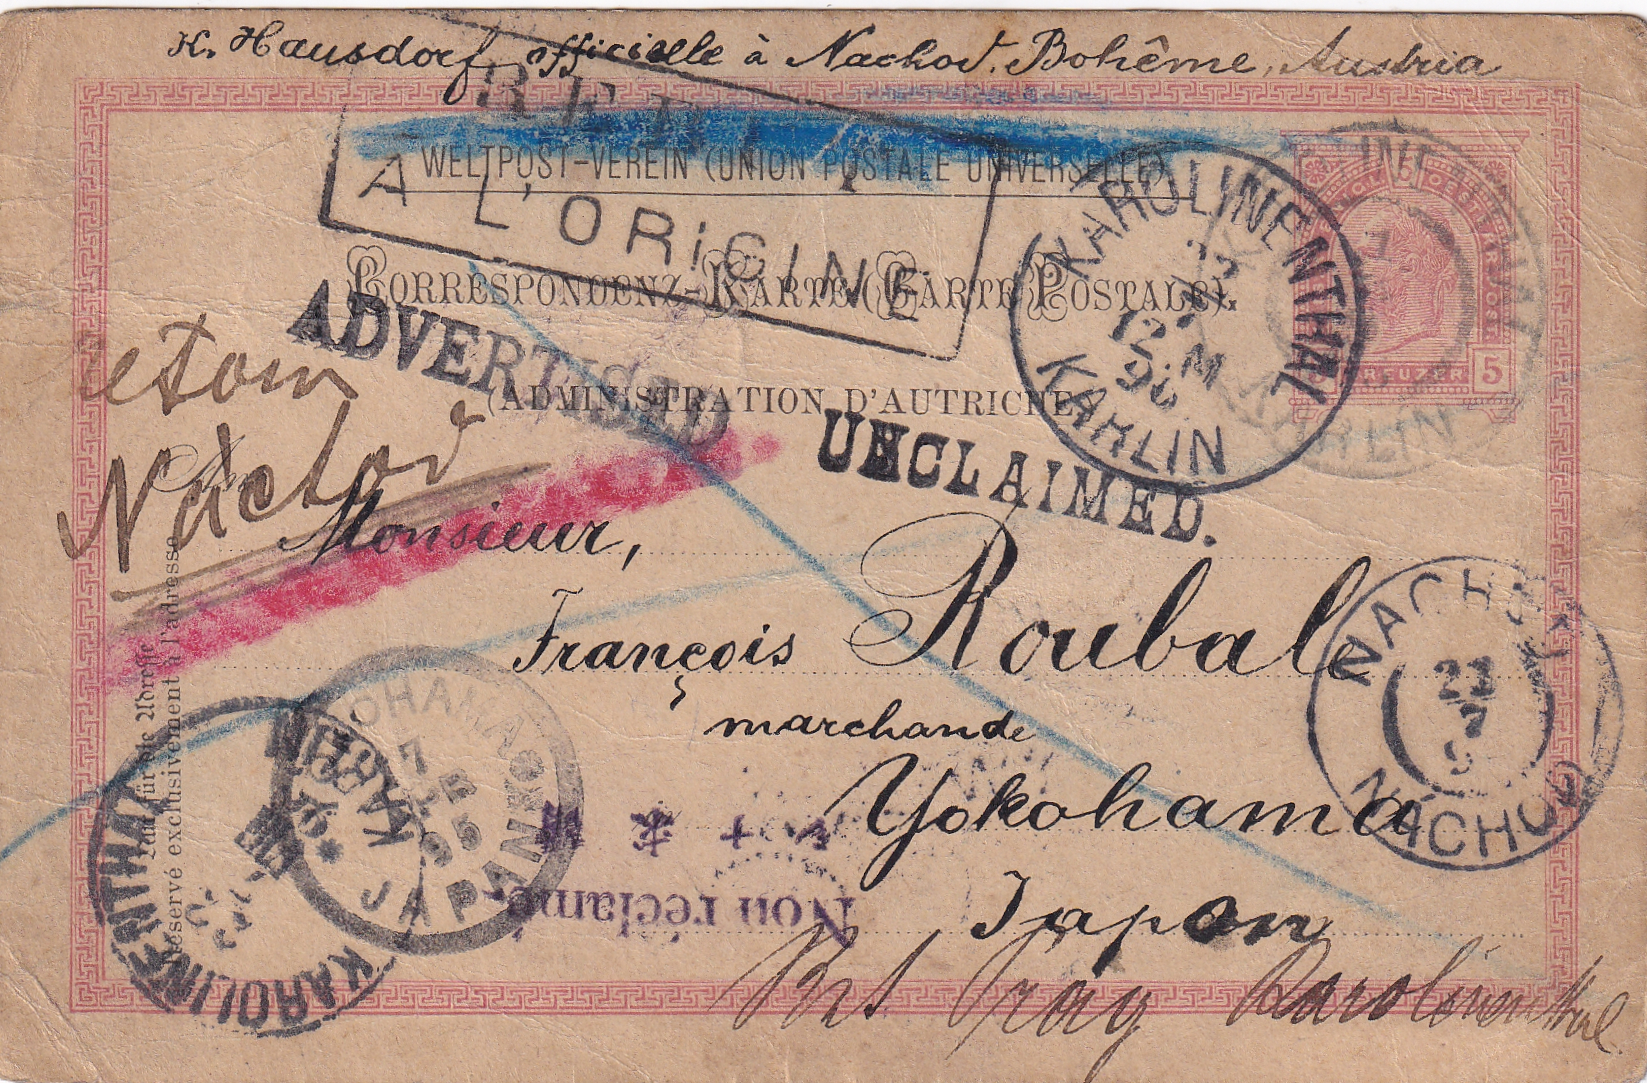 K. Hausdorf, officielle à Nachod. Bohême, Austria
RETOUR
À L'ORIGINE
WELTPOST-VEREIN (UNION POSTALE UNIVERSELLE)
CORRESPONDENZ-KARTE (CARTE POSTALE).
(ADMINISTRATION D'AUTRICHE)
ADVERTISED
UNCLAIMED.
KAROLINENTHAL
12 M
KARLIN
KARLIN
KREUZER 5
Nachod
An
Monsieur,
François Roubale
marchande
Yokohama
Japon
NACHOD
7
NÁCHOD
Nur für die Adresse
Réservé exclusivement à l'adresse
YOKOHAMA
JAPAN
KAROLINENTHAL
KARLIN
Non réclamé
Prag Karolinenthal